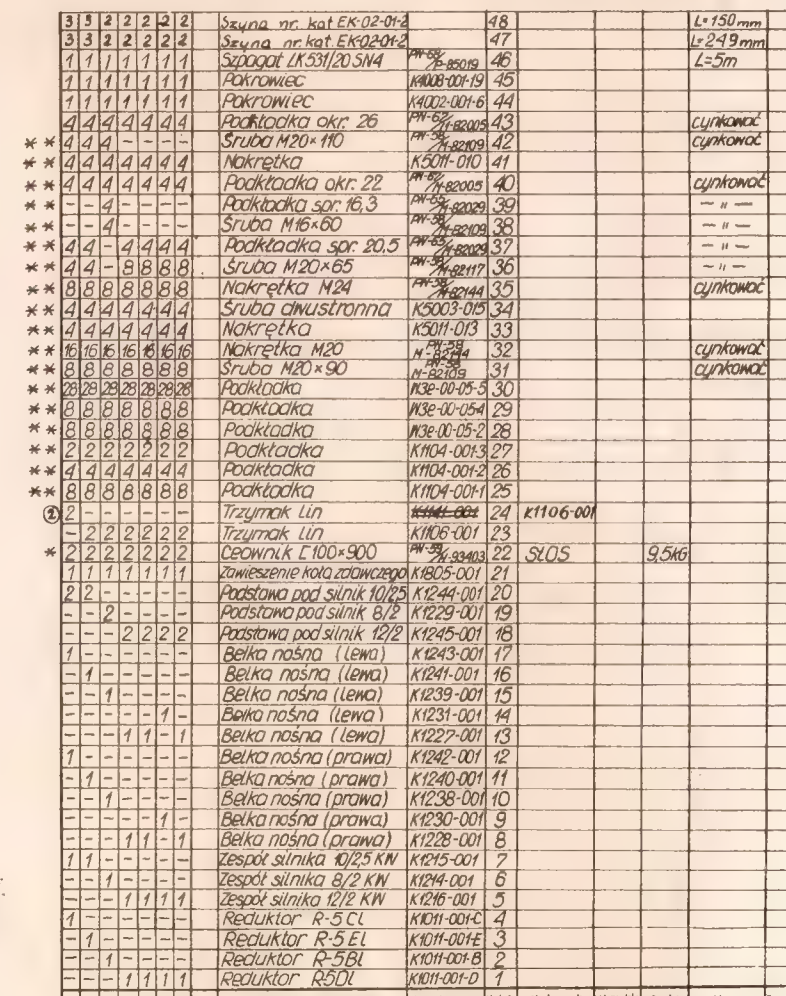 3 3 2 2 2 2 2 Szyna nr. kat EK-02-01-2 48 L=150mm
3 3 2 2 2 2 2 Szyna nr. kat EK-02-01-2 47 L=249mm
1 1 1 1 1 1 1 Szpagat LK531/20 SN4 PN-68/P-85019 46 L=5m
1 1 1 1 1 1 1 Pokrowiec K4008-001-19 45
1 1 1 1 1 1 1 Pokrowiec K4002-001-6 44
4 4 4 4 4 4 4 Podkładka okr. 26 PN-67/M-82005 43 cynkować
** 4 4 4 - - - - Śruba M20×110 PN-58/M-82109 42 cynkować
** 4 4 4 4 4 4 4 Nakrętka K5011-010 41
** 4 4 4 4 4 4 4 Podkładka okr. 22 PN-67/M-82005 40 cynkować
** - - 4 - - - - Podkładka spr. 16,3 PN-65/M-82029 39 — " —
** - - 4 - - - - Śruba M16×60 PN-58/M-82109 38 — " —
** 4 4 - 4 4 4 4 Podkładka spr. 20,5 PN-65/M-82029 37 — " —
** 4 4 - 8 8 8 8 Śruba M20×65 PN-58/M-82117 36 — " —
** 8 8 8 8 8 8 8 Nakrętka M24 PN-58/M-82144 35 cynkować
** 4 4 4 4 4 4 4 Śruba dwustronna K5003-015 34
** 4 4 4 4 4 4 4 Nakrętka K5011-013 33
** 16 16 16 16 16 16 16 Nakrętka M20 PN-58 M-82144 32 cynkować
** 8 8 8 8 8 8 8 Śruba M20×90 PN-58 M-82109 31 cynkować
** 28 28 28 28 28 28 28 Podkładka W3e-00-05-5 30
** 8 8 8 8 8 8 8 Podkładka W3e-00-05-4 29
** 8 8 8 8 8 8 8 Podkładka W3e-00-05-2 28
** 2 2 2 2 2 2 2 Podkładka K1104-001-3 27
** 4 4 4 4 4 4 4 Podkładka K1104-001-2 26
** 8 8 8 8 8 8 8 Podkładka K1104-001-1 25
② 2 - - - - - - Trzymak lin 24 K1106-001
- 2 2 2 2 2 2 Trzymak lin K1106-001 23
* 2 2 2 2 2 2 2 Ceownik [100×900 PN-59/H-93403 22 St0S 9,5kG
1 1 1 1 1 1 1 Zawieszenie koła zdawczego K1805-001 21
2 2 - - - - - Podstawa pod silnik 10/2,5 K1244-001 20
- - 2 - - - - Podstawa pod silnik 8/2 K1229-001 19
- - - 2 2 2 2 Podstawa pod silnik 12/2 K1245-001 18
1 - - - - - - Belka nośna (lewa) K1243-001 17
- 1 - - - - - Belka nośna (lewa) K1241-001 16
- - 1 - - - - Belka nośna (lewa) K1239-001 15
- - - - - 1 - Belka nośna (lewa) K1231-001 14
- - - 1 1 - 1 Belka nośna (lewa) K1227-001 13
1 - - - - - - Belka nośna (prawa) K1242-001 12
- 1 - - - - - Belka nośna (prawa) K1240-001 11
- - 1 - - - - Belka nośna (prawa) K1238-001 10
- - - - - 1 - Belka nośna (prawa) K1230-001 9
- - - 1 1 - 1 Belka nośna (prawa) K1228-001 8
1 1 - - - - - Zespół silnika 10/2,5 KW K1215-001 7
- - 1 - - - - Zespół silnika 8/2 KW K1214-001 6
- - - 1 1 1 1 Zespół silnika 12/2 KW K1216-001 5
1 - - - - - - Reduktor R-5 CL K1011-001-C 4
- 1 - - - - - Reduktor R-5 EL K1011-001-E 3
- - 1 - - - - Reduktor R-5BL K1011-001-B 2
- - - 1 1 1 1 Reduktor R-5DL K1011-001-D 1